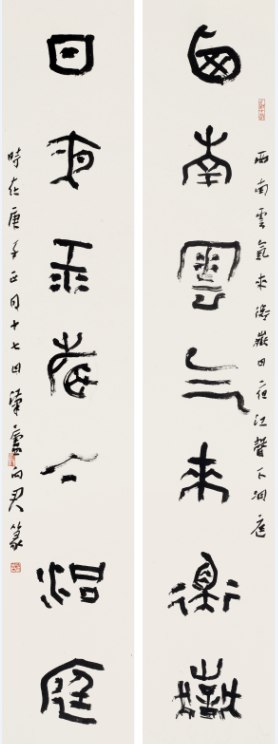 西南雲氣來衡嶽日夜江聲下洞庭
西南雲氣來衡嶽
日夜江聲下洞庭
時在庚子正月十七日君篆